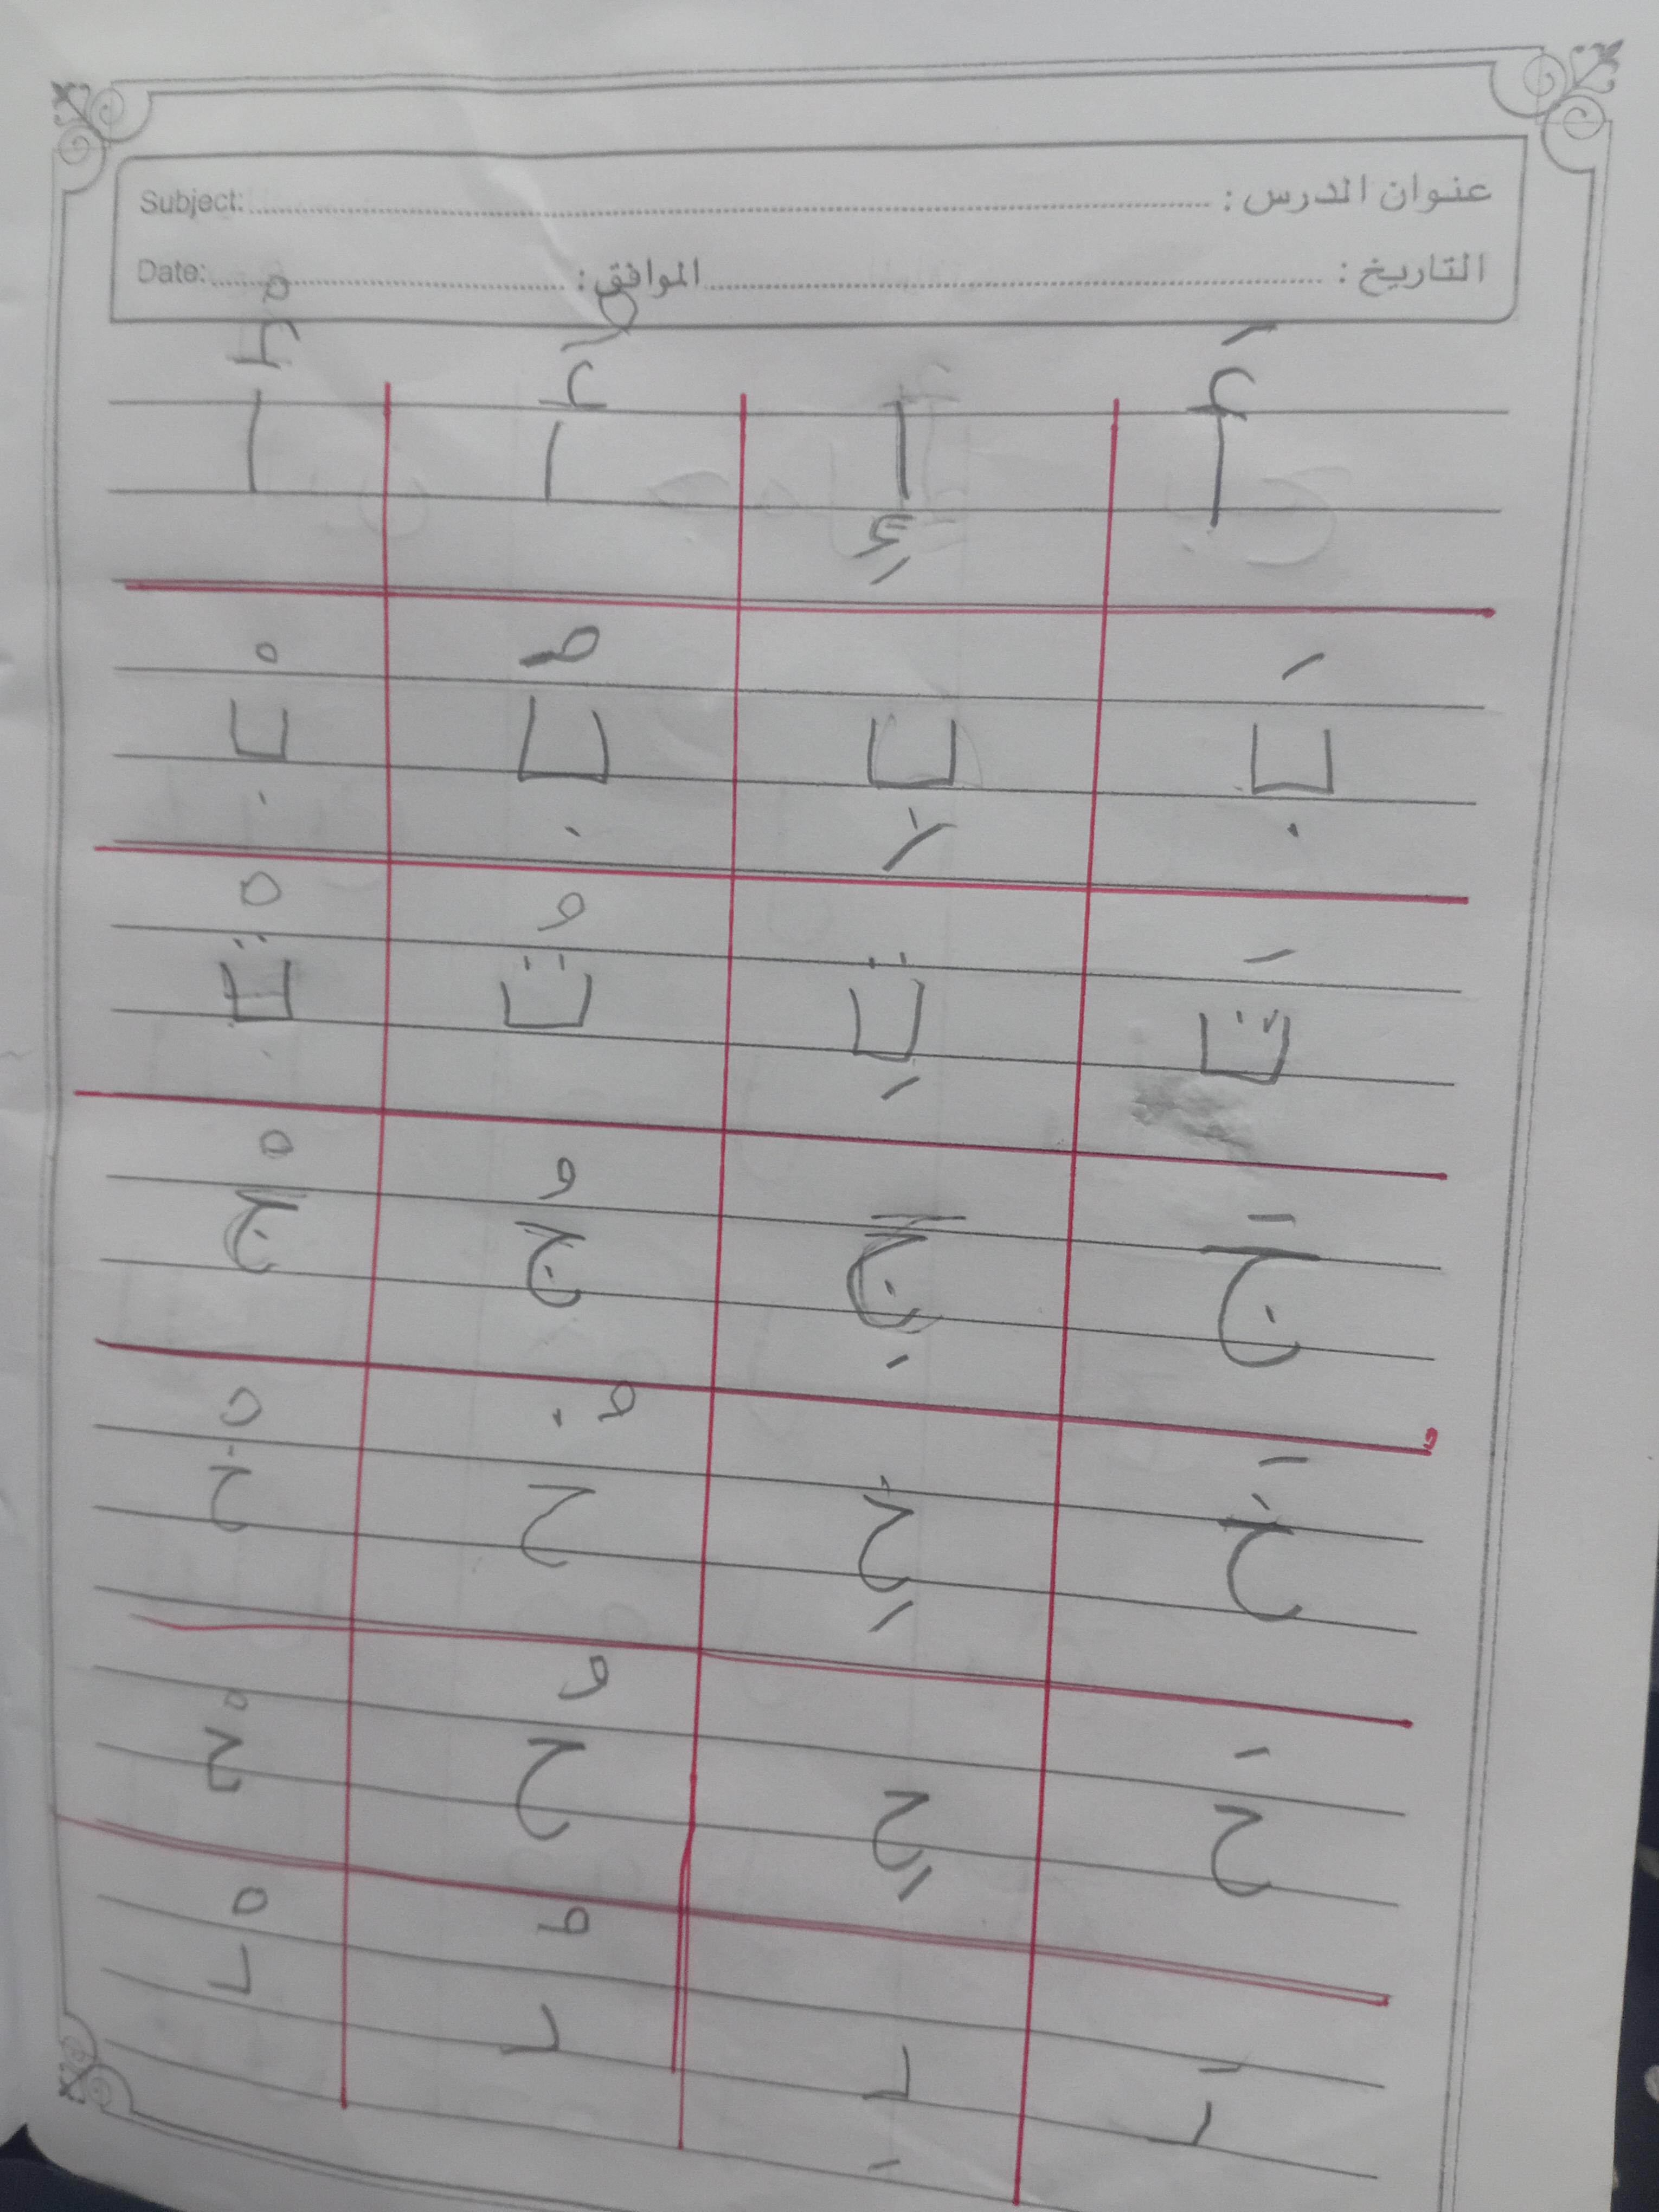 عنوان الدرس : Subject:
التاريخ : الموافق : Date:
أَ إِ أُ أْ
بَ بِ بُ بْ
تَ تِ تُ تْ
جَ جِ جُ جْ
خَ خِ خُ خْ
حَ حِ حُ حْ
دَ دِ دُ دْ